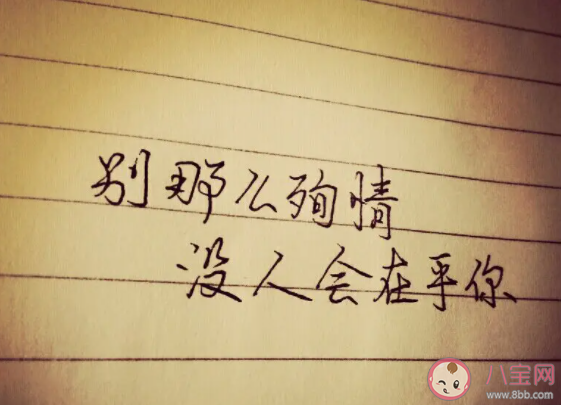 别那么殉情
没人会在乎你
八宝网
www.8bb.com